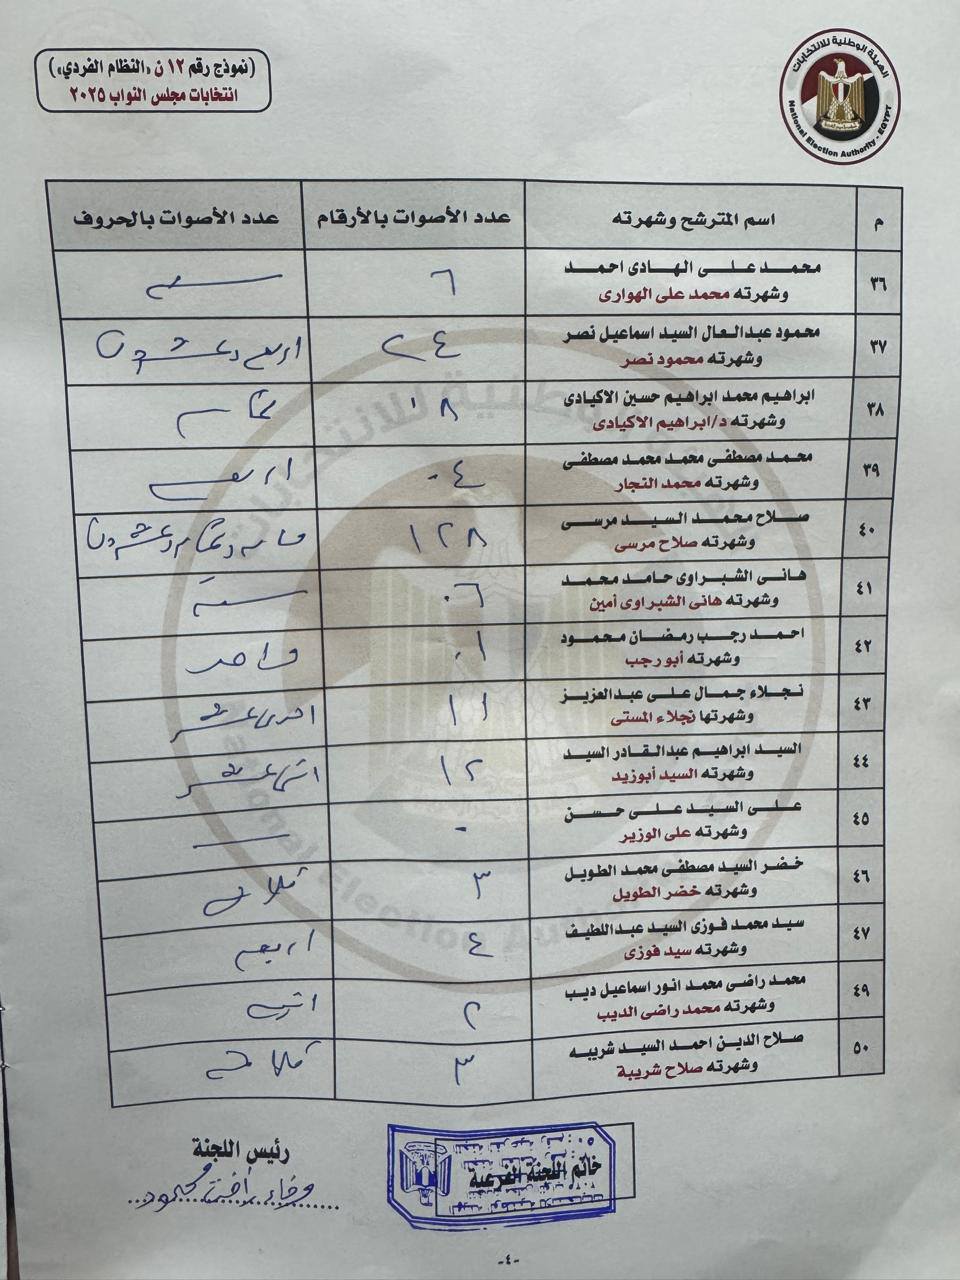 (نموذج رقم ١٢ ن «النظام الفردي»)
انتخابات مجلس النواب ٢٠٢٥
الهيئة الوطنية للانتخابات
National Election Authority - EGYPT
م | اسم المترشح وشهرته | عدد الأصوات بالأرقام | عدد الأصوات بالحروف
٣٦ | محمد على الهادى احمد | ٦ | سته
وشهرته محمد على الهوارى
٣٧ | محمود عبدالعال السيد اسماعيل نصر | ٢٤ | اربعه وعشرون
وشهرته محمود نصر
٣٨ | ابراهيم محمد ابراهيم حسين الاكيادى | ٠٨ | ثمانيه
وشهرته د/ابراهيم الاكيادى
٣٩ | محمد مصطفى محمد محمد مصطفى | ٠٤ | اربعه
وشهرته محمد النجار
٤٠ | صلاح محمد السيد مرسى | ١٢٨ | مائه وثمانيه وعشرون
وشهرته صلاح مرسى
٤١ | هانى الشبراوى حامد محمد | ٠٦ | سته
وشهرته هانى الشبراوى أمين
٤٢ | احمد رجب رمضان محمود | ٠١ | واحد
وشهرته أبو رجب
٤٣ | نجلاء جمال على عبدالعزيز | ١١ | احدى عشر
وشهرتها نجلاء المستى
٤٤ | السيد ابراهيم عبدالقادر السيد | ١٢ | اثنا عشر
وشهرته السيد أبوزيد
٤٥ | على السيد على حسن | ٠
وشهرته على الوزير
٤٦ | خضر السيد مصطفى محمد الطويل | ٣ | ثلاثه
وشهرته خضر الطويل
٤٧ | سيد محمد فوزى السيد عبداللطيف | ٤ | اربعه
وشهرته سيد فوزى
٤٩ | محمد راضى محمد انور اسماعيل ديب | ٢ | اثنين
وشهرته محمد راضى الديب
٥٠ | صلاح الدين احمد السيد شريبه | ٣ | ثلاثه
وشهرته صلاح شريبة
خاتم اللجنة الفرعية
رئيس اللجنة
-٤-